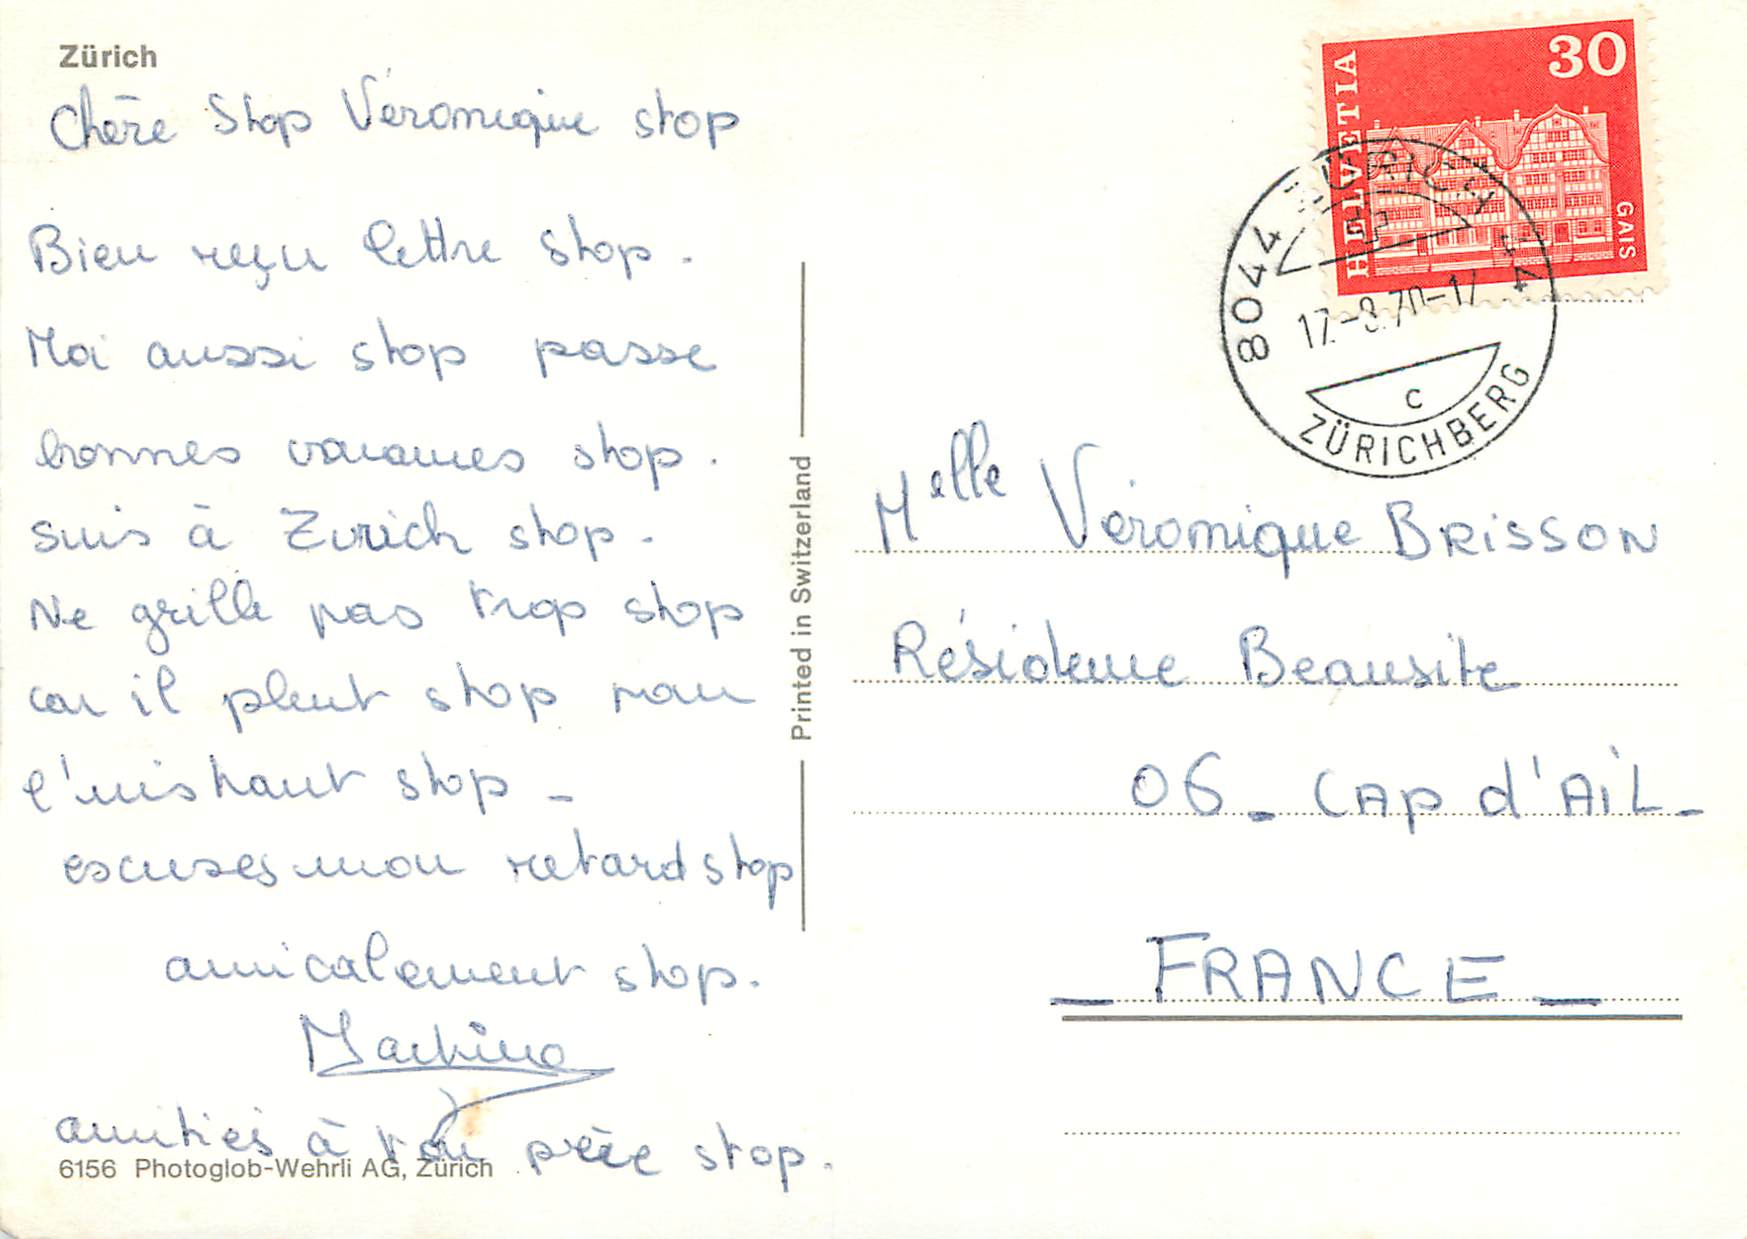 Zürich
Chère Stop Véronique stop
Bien reçu lettre stop.
Moi aussi stop passe
bonnes vacances stop.
suis à Zurich stop.
Ne grille pas trop stop
car il pleut stop
l'uis haut stop _
escuses mon retard stop
amicalement stop.
Martine
amitiés à ton père stop.
6156 Photoglob-Wehrli AG, Zürich
Printed in Switzerland
HELVETIA
30
GAIS
8044 ZÜRICH 44
17.-8.70-17
C
ZÜRICHBERG
Melle Véronique BRISSON
Résidence Beausite
06_ CAP d'AiL_
_ FRANCE _